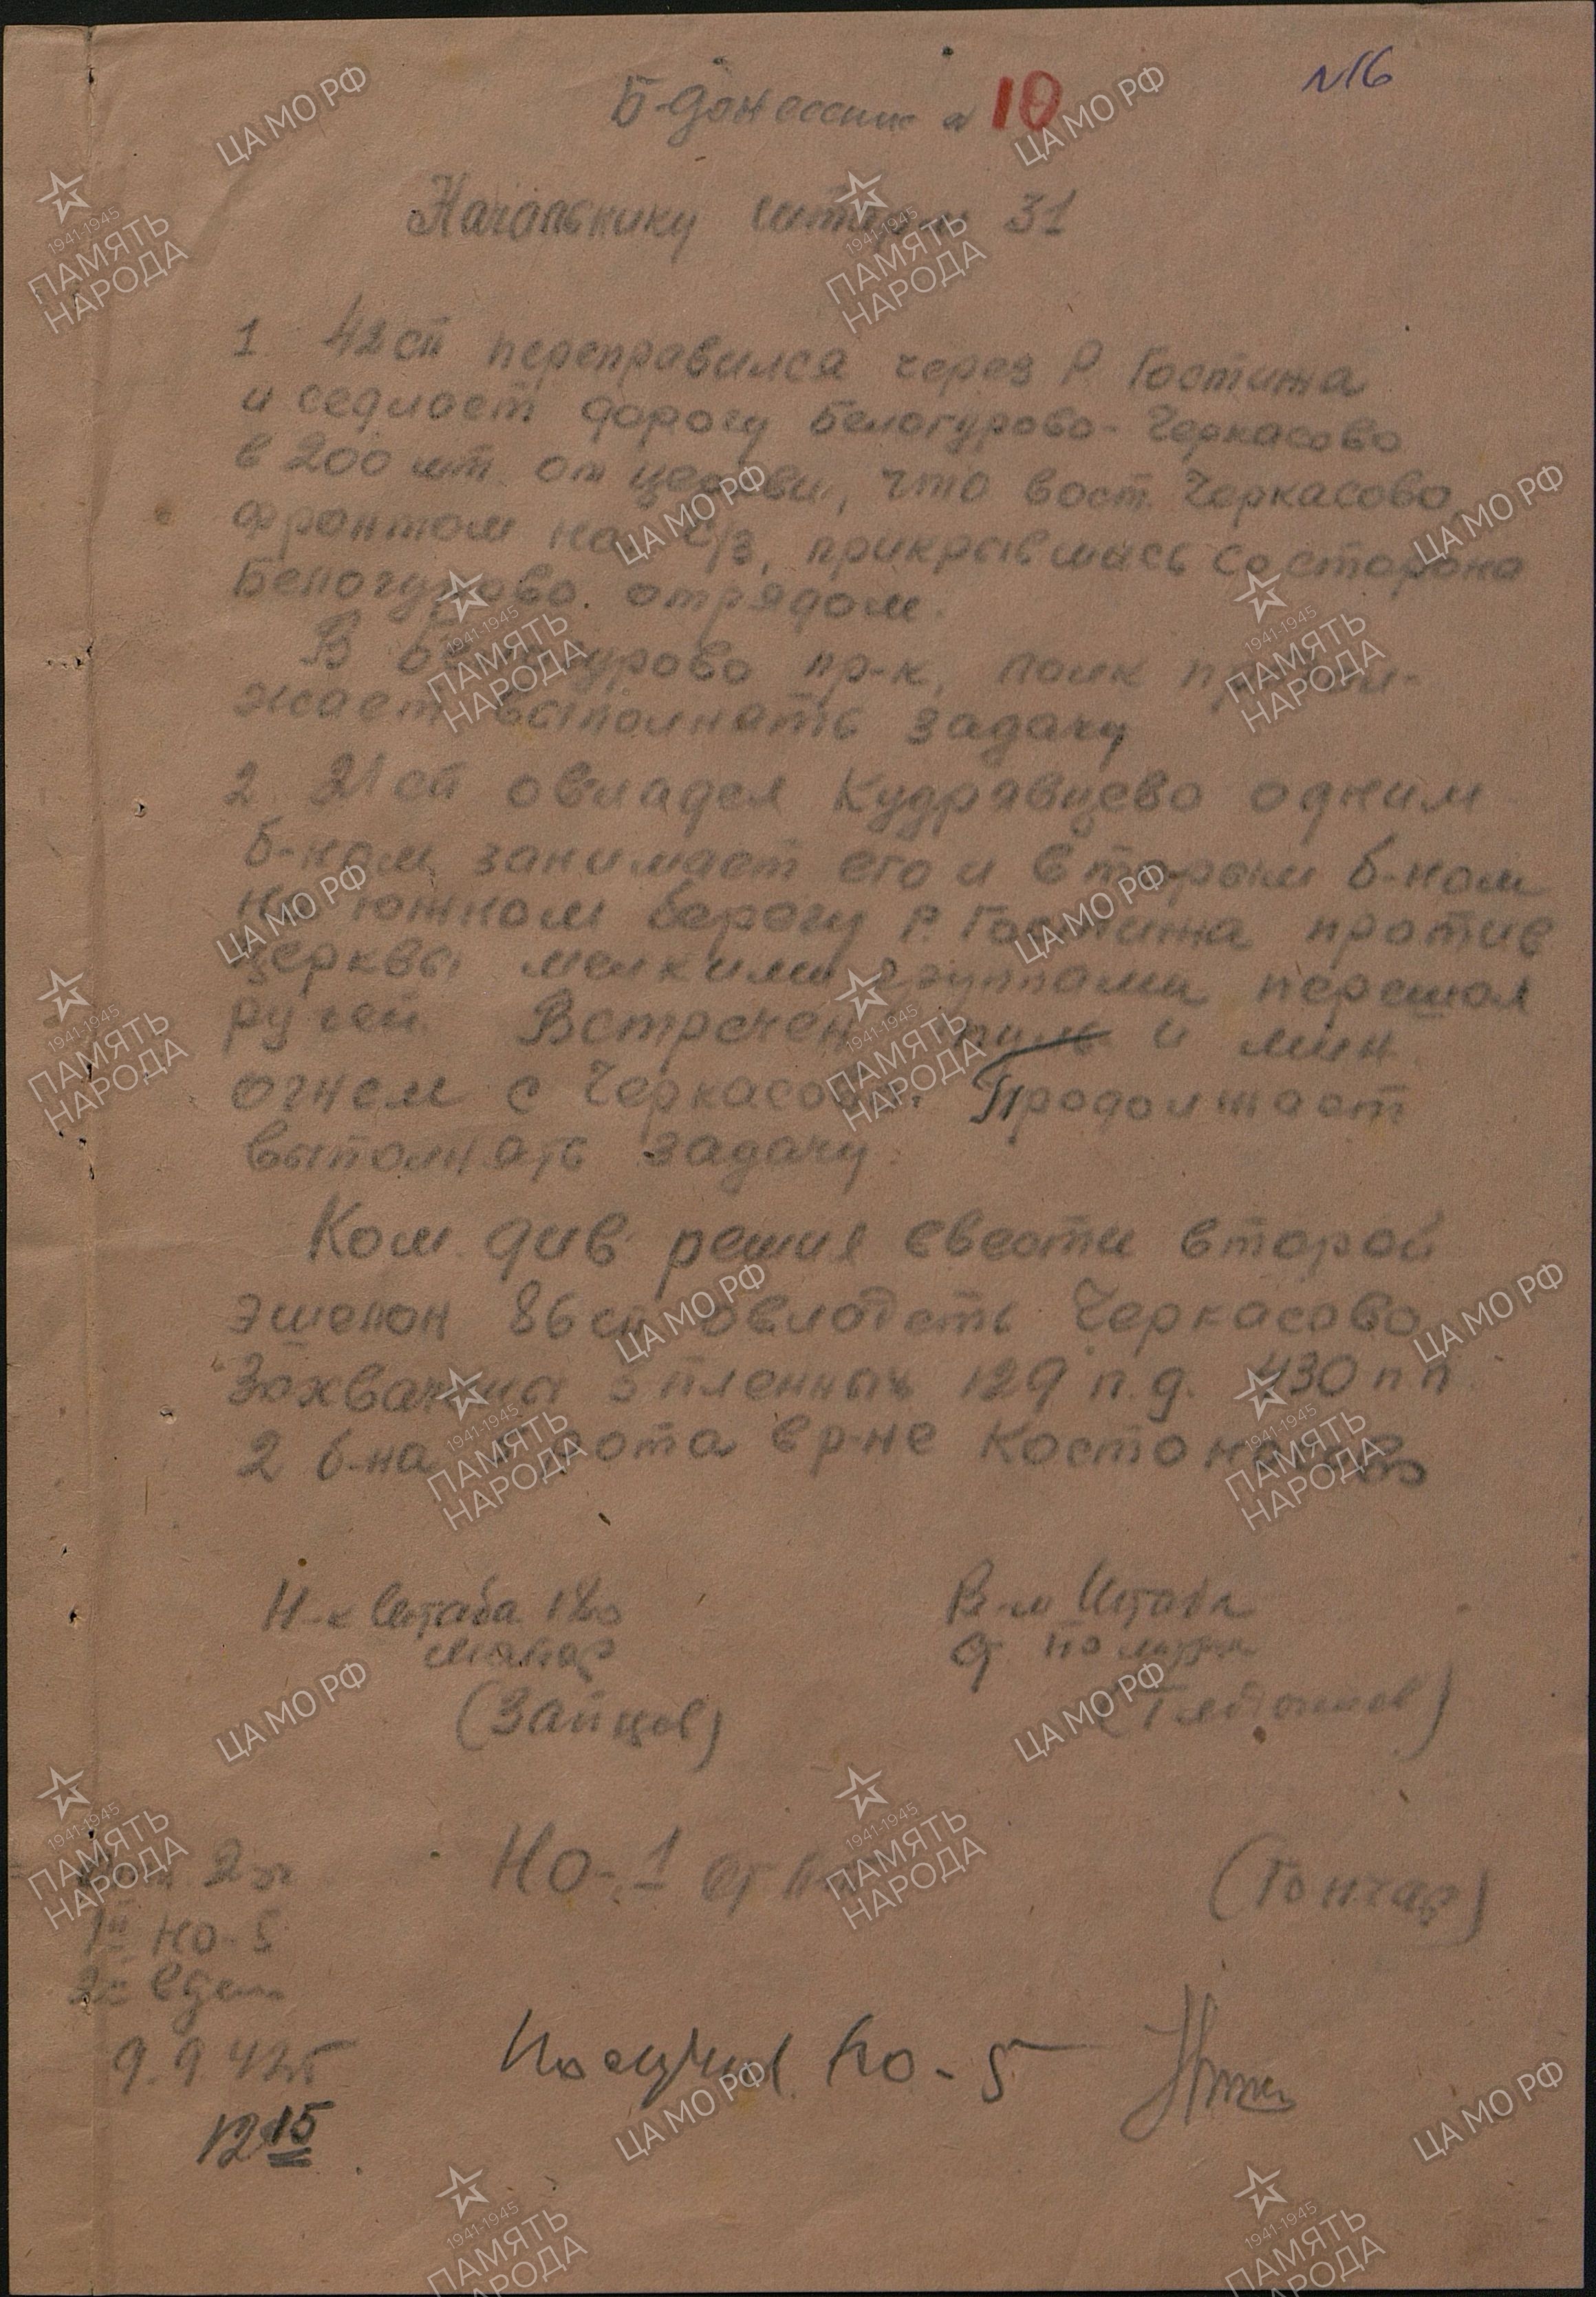 №16
Б-донесение № 10
Начальнику штарма 31
1 42 сп переправился через Р Гостижа
и седлает дорогу Белогурово - Черкасово
в 200 мт. от церкви, что вост. Черкасово
фронтом на с/з, прикрывшись со сторона
Белогурово отрядом.
В Белогурово пр-к, полк продол-
жает выполнять задачу
2. 21 сп овладел Кудрявцево одним
б-ном занимает его и вторым б-ном
на южном берегу Р. Гостижа против
церквы мелкими группами перешол
ручей. Встречен пулм и мин
огнем с Черкасово. Продолжает
выполнять задачу.
Ком. див решил ввести второй
эшелон 86 сп овлодеть Черкасово
Захвачены 3 пленных 129 п.д. 430 п п
2 б-на рота в р-не Костоносово
Н-к Штаба
майор
(Зайцев)
В-м Штаба
(Гончар)
НО-1
2
1й НО-5
2й в дел
9.9.42г
12 15
Получил НО-5
ЦА МО РФ
1941-1945
ПАМЯТЬ
НАРОДА